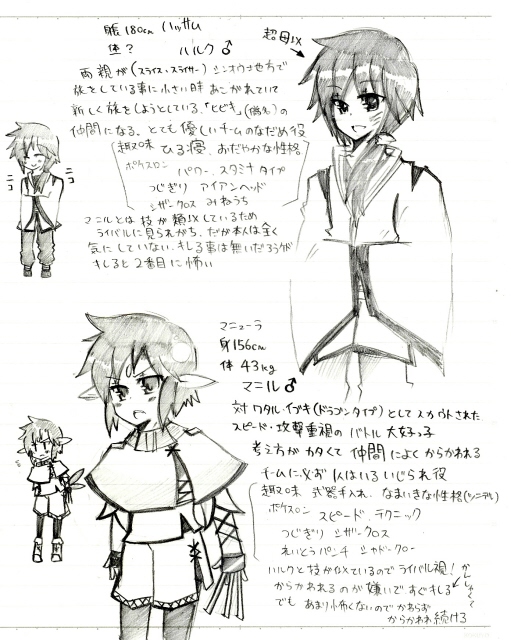 長180cm ハッサム
体?
ハルク♂
超母似
両親が(スライス・スライサー)シンオウ地方で
旅をしている事に小さい時あこがれていて
新しく旅をしようとしている、「ヒビキ」(偽名)の
仲間になる。とても優しいチームのなだめ役
趣味 ひる寝、おだやかな性格
ポケスロン
パワー・スタミナタイプ
つじぎり アイアンヘッド
シザークロス みねうち
マニルとは技が類似しているため
ライバルに見られがち、だが本人は全く
気にしていない、キレる事は無いだろうが
キレると2番目に怖い
ニコ
ニコ
マニューラ
身156cm
体 43kg
マニル♂
対ワタル・イブキ(ドラゴンタイプ)としてスカウトされた
スピード・攻撃重視の バトル大好っ子
考え方がカタくて仲間によくからかわれる
チームに必ず1人はいるいじられ役
趣味 武器手入れ、なまいきな性格(ツンデレ)
ポケスロン
スピード、テクニック
つじぎり シザークロス
れいとうパンチ シャドークロー
ハルクと技がにているのでライバル視!
からかわれるのが嫌いですぐキレる
でも あまり怖くないので かならず
からかわれ続ける